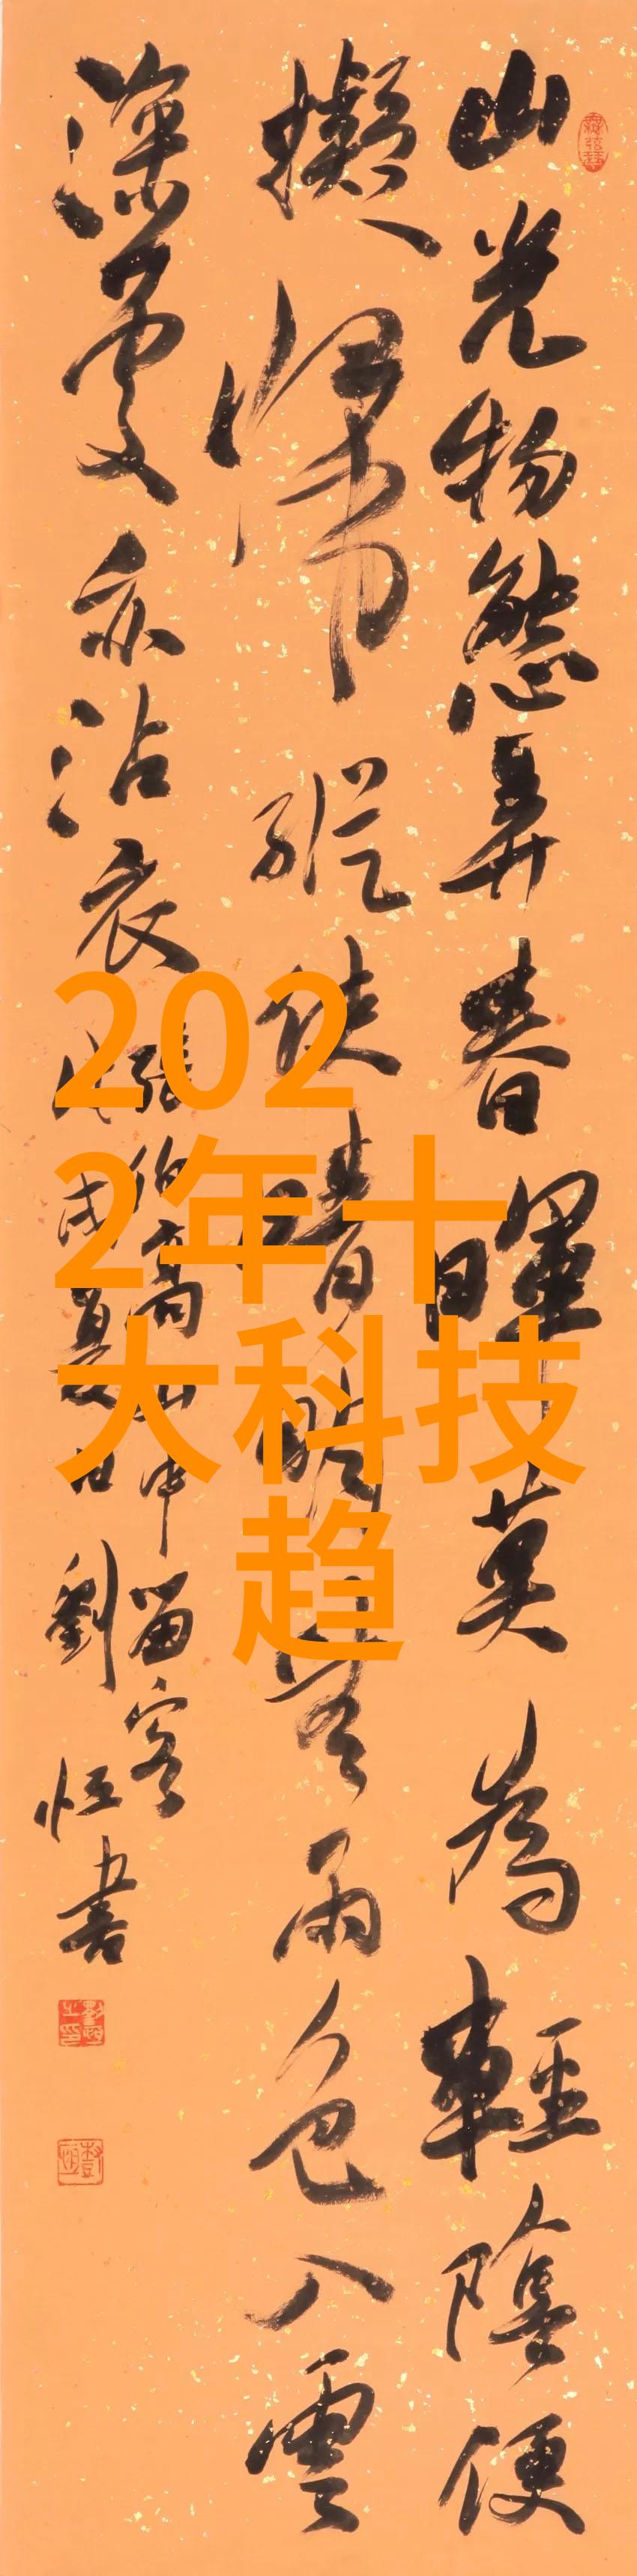 山光物態弄春暉莫為輕陰便
擬歸縱使晴明無雨色入雲
深處亦沾衣 張伯高山中留客
戊戌夏日劉恒書
202
2年十
大科技
趋